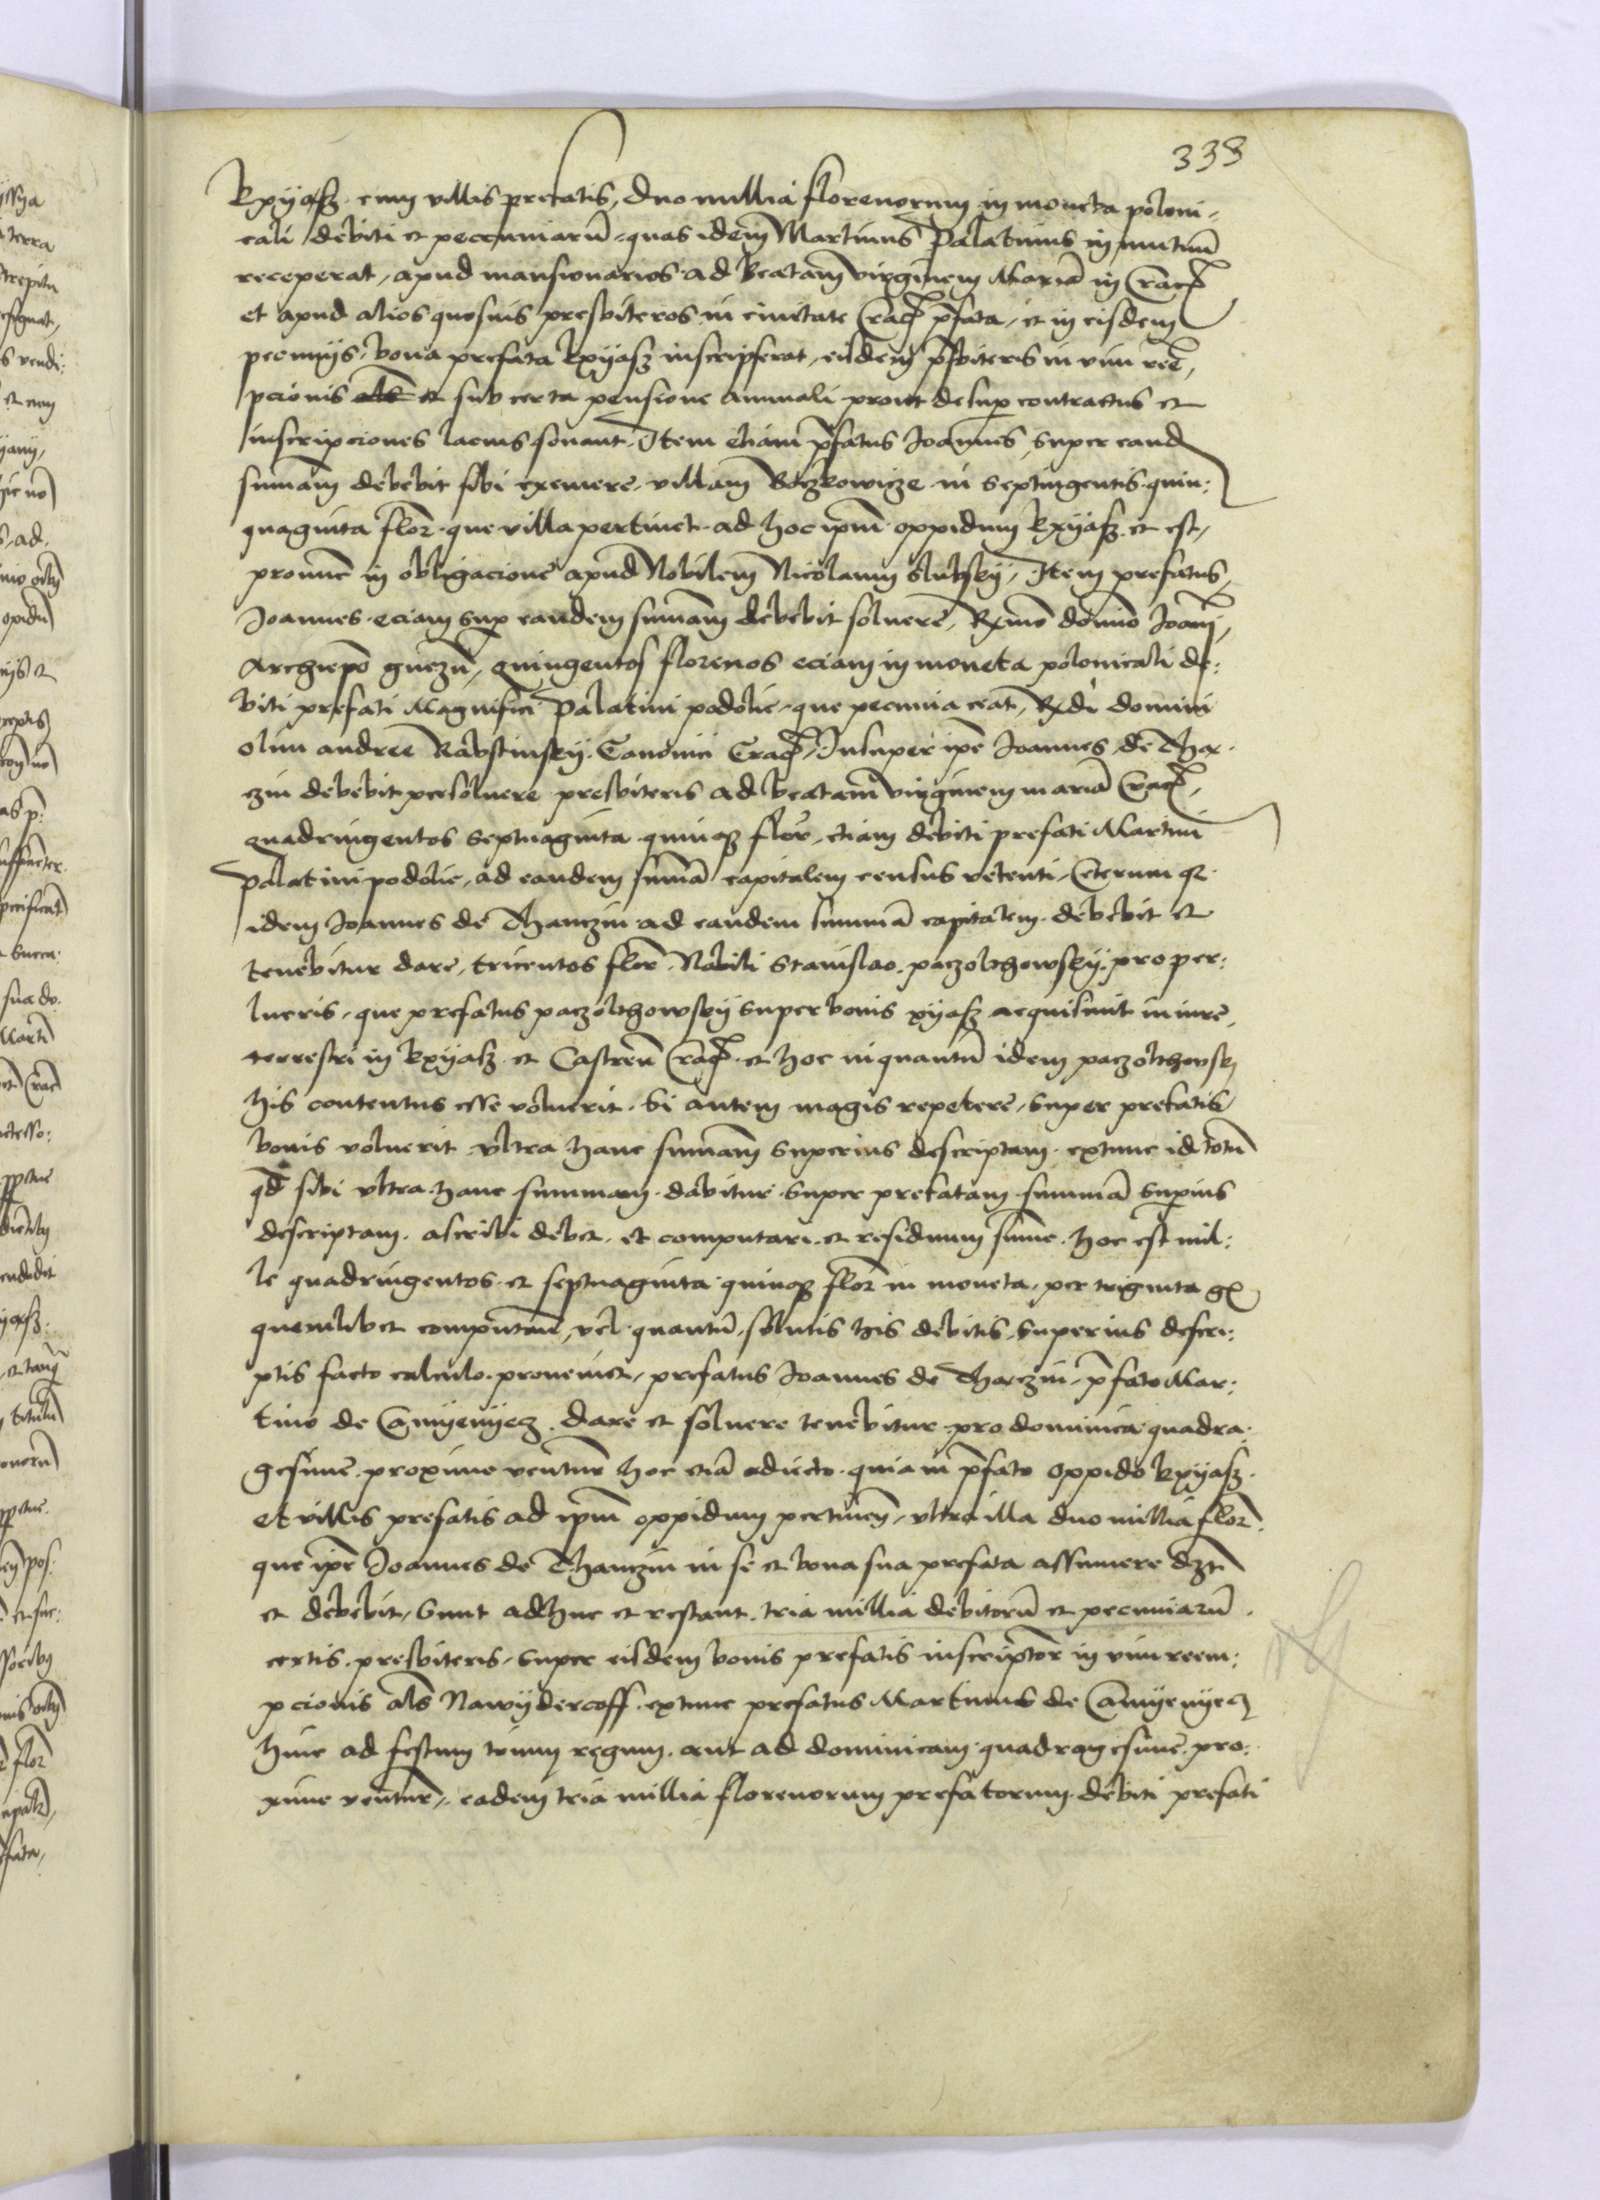 338
kxyąsz cum villis prefatis, duo millia florenorum in moneta poloni-
cali debiti et peccuniarū quas idem Martinus Palatinus in mutuū
receperat, apud mansionarios ad beatam virginem Mariā in Crac
et apud alios quosuis presbiteros in ciuitate Crac pfata, et in eisdem
pecunijs, bona prefata kxyasz inscripserat, eisdem psbiteris in vim ree,
pcionis et sub certa pensione annuali prout desup contractus et
inscripciones lacius sonant. Item eciam pfatus Joannes, super eand
sumam debebit sibi exemere, villam Boczkowicze in septingentis quin:
quaginta flor que villa pertinet ad hoc ipm oppidum kxyasz et est,
pronunc in obligacione apud Nobilem Nicolaum slutsky, Item prefatus,
Joannes eciam sup eandem sumam debebit soluere, Rxmo domno Joanj,
Archiepo gnezn, quingentos florenos eciam in moneta polonicali de:
biti prefati Magnifici Palatini podolie, que pecunia erat, Rxdi domini
olim andree Rabstinsky Canonici Crac, Insuper ipe Joannes de Than
czin debebit persoluere presbiteris ad beatam virginem mariā Crac,
quadringentos septuaginta quinq flor, etiam debiti prefati Martini
Palatini podolie, ad eandem sumā capitalem census retenti, Ceterum q
idem Joannes de Thanczin ad eandem summā capitalem debebit et
tenebitur dare, tricentos flor Nobili Stanislao paczolthowsky pro per:
lucris, que prefatus paczolthowsky super bonis xyasz acquisiuit in iure,
terrestri in kxyasz et Castren Crac et hoc inquantū idem paczolthowsky
his contentus esse voluerit. Si autem magis repetere, super prefatis
bonis voluerit vltra hanc sumam superius descriptam extunc id totū
qd sibi vltra hanc summam dabitur super prefatam summā supius
descriptam ascribi debet et computari et residuum sume hoc est mil:
le quadringentos et septuaginta quinq flor in moneta per triginta g
quemlibet computan, vel quantū, solutis his debitis superius descri:
ptis facto calculo proueniet, prefatus Joannes de Thanczin, pfato Mar:
tino de Camyenyecz dare et soluere tenebitur pro dominica quadra:
gesime proxime ventur hoc eciā adiecto quia in pfato oppido kxyasz
et villis prefatis ad ipm oppidum pertinen, vltra illa duo millia flor
que ipe Joannes de Thanczin in se et bona sua prefata assumere dz
et debebit, sunt adhuc et restant tria millia debitorū et pecuniarū
certis presbiteris, super eisdem bonis prefatis inscriptor in vim reem:
pcionis als Nawydercoff extunc prefatus Martinus de Camyenyecz
hinc ad festum trium regum aut ad dominicam quadragesime pro:
xime ventur, eadem tria millia florenorum prefatorum debiti prefati